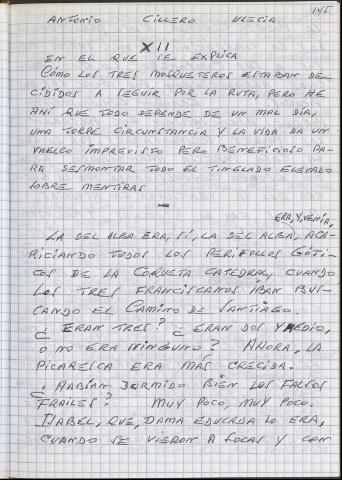 145
ANTONIO CILLERO ULECIA
XII
EN EL QUE SE EXPLICA
COMO LOS TRES MOSQUETEROS ESTABAN DE-
CIDIDOS A SEGUIR POR LA RUTA, PERO HE
AHÍ QUE TODO DEPENDE DE UN MAL DÍA,
UNA TORPE CIRCUNSTANCIA Y LA VIDA DA UN
VUELCO IMPREVISTO PERO BENEFICIOSO PA-
RA DESMONTAR TODO EL TINGLADO ELEVADO
SOBRE MENTIRAS
—
ERA, Y VENÍA,
LA DEL ALBA ERA, SÍ, LA DEL ALBA, ACA-
RICIANDO TODOS LOS PERIFOLLOS GÓTI-
COS DE LA COQUETA CATEDRAL, CUANDO
LOS TRES FRANCISCANOS IBAN BUS-
CANDO EL CAMINO DE SANTIAGO.
¿ ERAN TRES? ¿ ERAN DOS Y MEDIO,
O NO ERA NINGUNO? AHORA, LA
PICARESCA ERA MÁS CRECIDA.
¿ HABÍAN DORMIDO BIEN LOS FALSOS
FRAILES? MUY POCO, MUY POCO.
ISABEL, QUE, DAMA EDUCADA LO ERA,
CUANDO SE VIERON A SOLAS Y CON